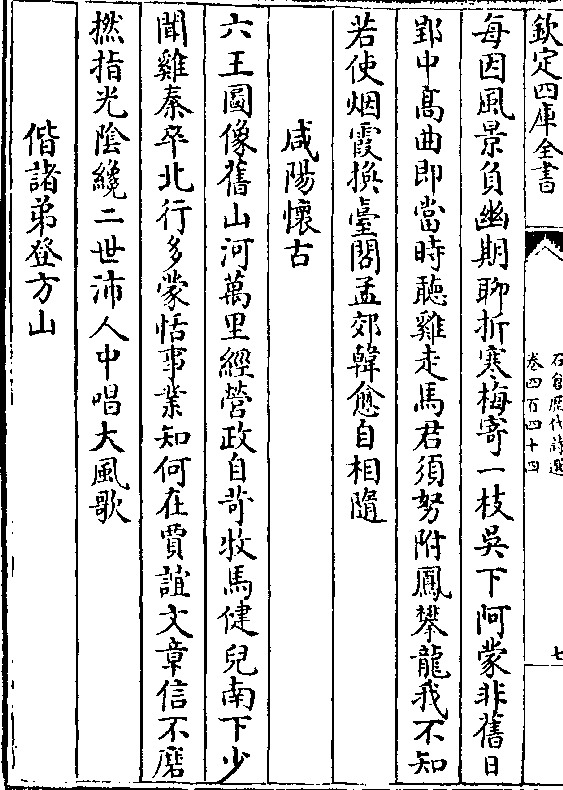 欽定四庫全書
石倉歷代詩選
卷四百四十四
七
每因風景負幽期聊折寒梅寄一枝吳下阿蒙非舊日
郢中髙曲即當時聽雞走馬君須努附鳳攀龍我不知
若使烟霞換臺閣孟郊韓愈自相隨
咸陽懷古
六王圖像舊山河萬里經營政自苛牧馬健兒南下少
聞雞秦卒北行多蒙恬事業知何在賈誼文章信不磨
撚指光陰纔二世沛人中唱大風歌
偕諸弟登方山